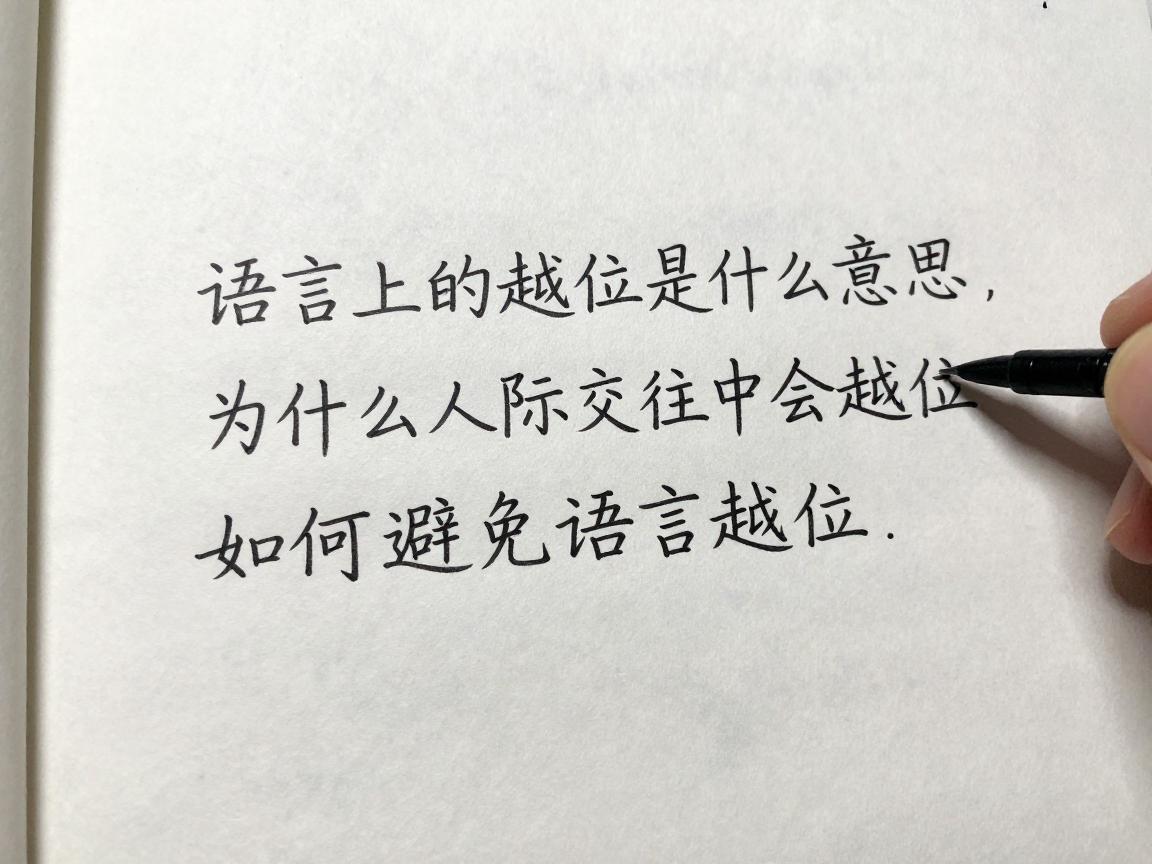 语言上的越位是什么意思，
为什么人际交往中会越位
如何避免语言越位.